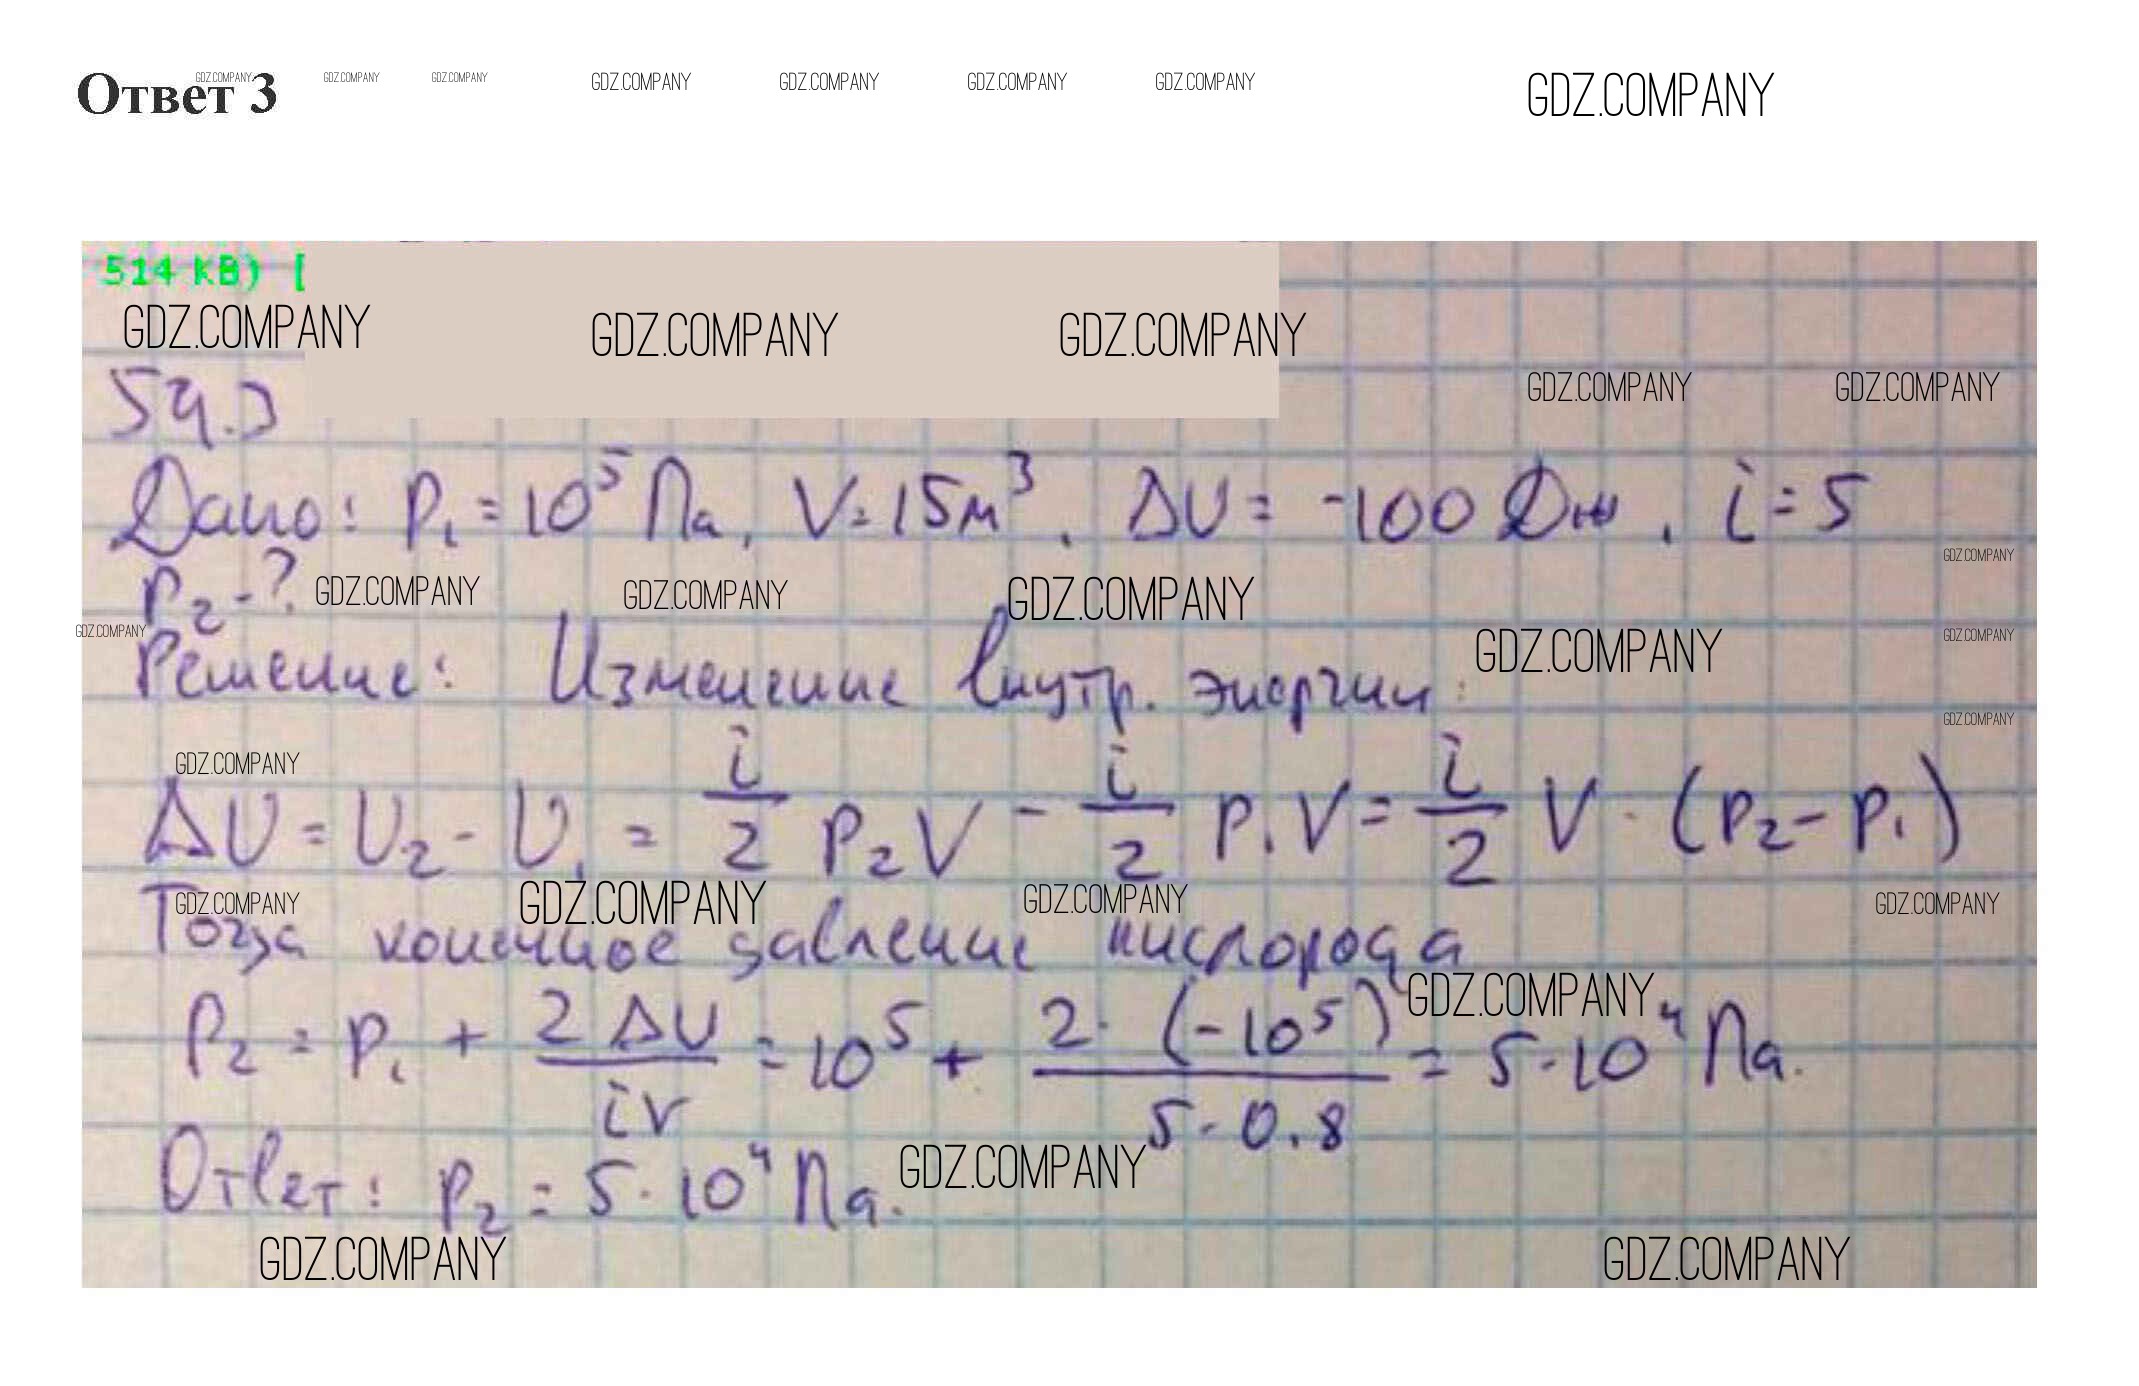 Ответ 3
GDZ.COMPANY GDZ.COMPANY GDZ.COMPANY GDZ.COMPANY GDZ.COMPANY GDZ.COMPANY GDZ.COMPANY GDZ.COMPANY
514 KB) [
GDZ.COMPANY GDZ.COMPANY GDZ.COMPANY
GDZ.COMPANY GDZ.COMPANY
54.3
Дано: p₁ = 10⁵ Па, V = 15 м³, ΔU = -100 Дж, i = 5
GDZ.COMPANY
p₂ - ?
GDZ.COMPANY GDZ.COMPANY GDZ.COMPANY
GDZ.COMPANY GDZ.COMPANY GDZ.COMPANY
Решение: Изменение внутр. энергии:
GDZ.COMPANY
GDZ.COMPANY
ΔU = U₂ - U₁ = i/2 p₂V - i/2 p₁V = i/2 V · (p₂ - p₁)
GDZ.COMPANY GDZ.COMPANY GDZ.COMPANY GDZ.COMPANY
Тогда конечное давление кислорода
GDZ.COMPANY
p₂ = p₁ + 2ΔU/iV = 10⁵ + 2·(-10⁵)/5·0.8 = 5·10⁴ Па.
Ответ: p₂ = 5·10⁴ Па.
GDZ.COMPANY
GDZ.COMPANY GDZ.COMPANY